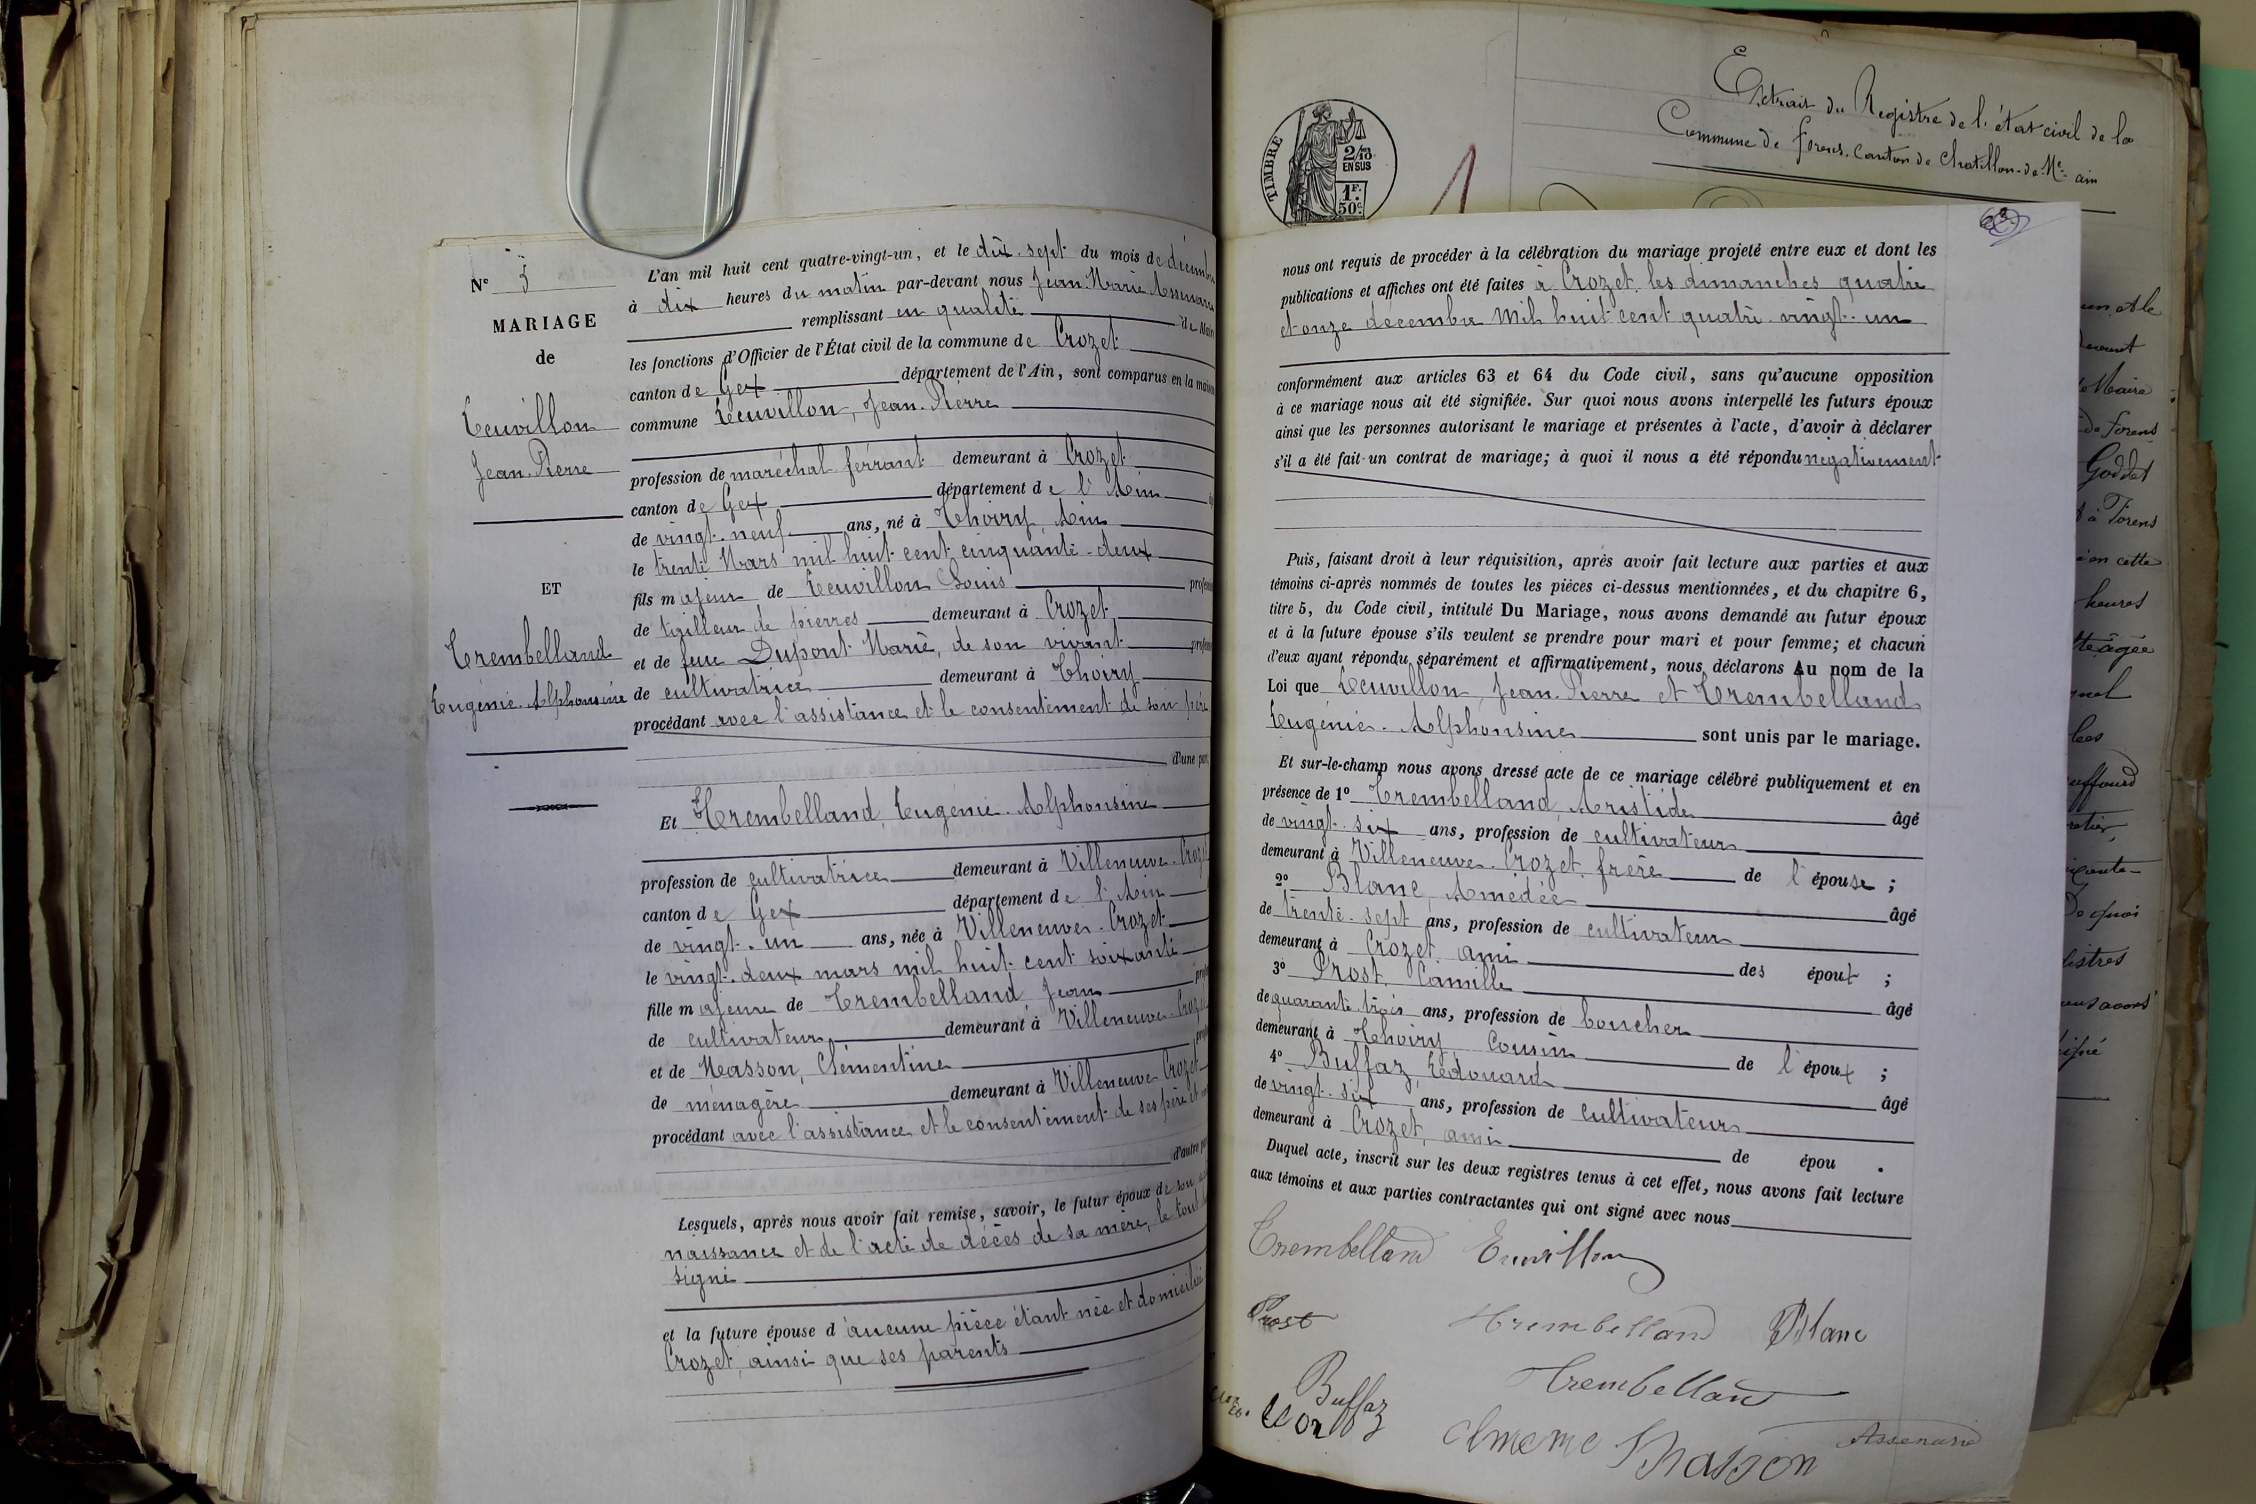 N° 5
MARIAGE
de
Euvillon
Jean-Pierre
ET
Trembelland
Eugénie-Alphonsine
L'an mil huit cent quatre-vingt-un, et le dix-sept du mois de décembre
à dix heures du matin par-devant nous Jean-Marie
remplissant en qualité de Maire
les fonctions d'Officier de l'État civil de la commune de Crozet
canton de Gex département de l'Ain, sont comparus en la maison
commune Euvillon, Jean-Pierre
profession de maréchal-ferrant demeurant à Crozet
canton de Gex, département de l'Ain
de vingt-neuf ans, né à Thoiry, Ain
le trente Mars mil huit cent cinquante-deux
fils majeur de Euvillon Louis profes
de tailleur de pierres demeurant à Crozet,
et de feue Dupont Marie, de son vivant profes
de cultivatrice demeurant à Thoiry
procédant avec l'assistance et le consentement de son père
d'une part
Et Trembelland, Eugénie-Alphonsine
profession de cultivatrice demeurant à Villeneuve-Crozet
canton de Gex département de l'Ain
de vingt-un ans, née à Villeneuve-Crozet
le vingt-deux mars mil huit cent soixante
fille majeure de Trembelland Jean profe
de cultivateur, demeurant à Villeneuve-Crozet
et de Masson, Clémentine
de ménagère demeurant à Villeneuve Crozet
procédant avec l'assistance et le consentement de ses père et
d'autre part
Lesquels, après nous avoir fait remise, savoir, le futur époux de son
naissance et de l'acte de décès de sa mère, le tout
signé
et la future épouse d'aucune pièce étant née et domiciliée
Crozet, ainsi que ses parents
TIMBRE
2/10 EN SUS
1 F. 50 c.
Extrait du Registre de l'état civil de la
Commune de Forens. Canton de Chatillon-de-Me. ain
nous ont requis de procéder à la célébration du mariage projeté entre eux et dont les
publications et affiches ont été faites à Crozet, les dimanches quatre
et onze décembre mil huit cent quatre-vingt-un
conformément aux articles 63 et 64 du Code civil, sans qu'aucune opposition
à ce mariage nous ait été signifiée. Sur quoi nous avons interpellé les futurs époux
ainsi que les personnes autorisant le mariage et présentes à l'acte, d'avoir à déclarer
s'il a été fait un contrat de mariage; à quoi il nous a été répondu négativement
Puis, faisant droit à leur réquisition, après avoir fait lecture aux parties et aux
témoins ci-après nommés de toutes les pièces ci-dessus mentionnées, et du chapitre 6,
titre 5, du Code civil, intitulé Du Mariage, nous avons demandé au futur époux
et à la future épouse s'ils veulent se prendre pour mari et pour femme; et chacun
d'eux ayant répondu séparément et affirmativement, nous déclarons Au nom de la
Loi que Euvillon, Jean-Pierre et Trembelland
Eugénie-Alphonsine sont unis par le mariage.
Et sur-le-champ nous avons dressé acte de ce mariage célébré publiquement et en
présence de 1° Trembelland, Aristide âgé
de vingt-six ans, profession de cultivateur
demeurant à Villeneuve-Crozet, frère de l'épouse;
2° Blanc, Amédée âgé
de trente-sept ans, profession de cultivateur
demeurant à Crozet, ami des époux;
3° Prost, Camille âgé
de quarante-trois ans, profession de boucher
demeurant à Thoiry Cousin de l'époux;
4° Buffaz, Edouard âgé
de vingt-six ans, profession de cultivateur
demeurant à Crozet, ami de épou .
Duquel acte, inscrit sur les deux registres tenus à cet effet, nous avons fait lecture
aux témoins et aux parties contractantes qui ont signé avec nous
Trembelland Euvillon
Prost Trembelland Blanc
Buffaz Trembelland
Masson
un et le
Maire
de Forens
Goddet
à Forens
en cette
heures
âgée